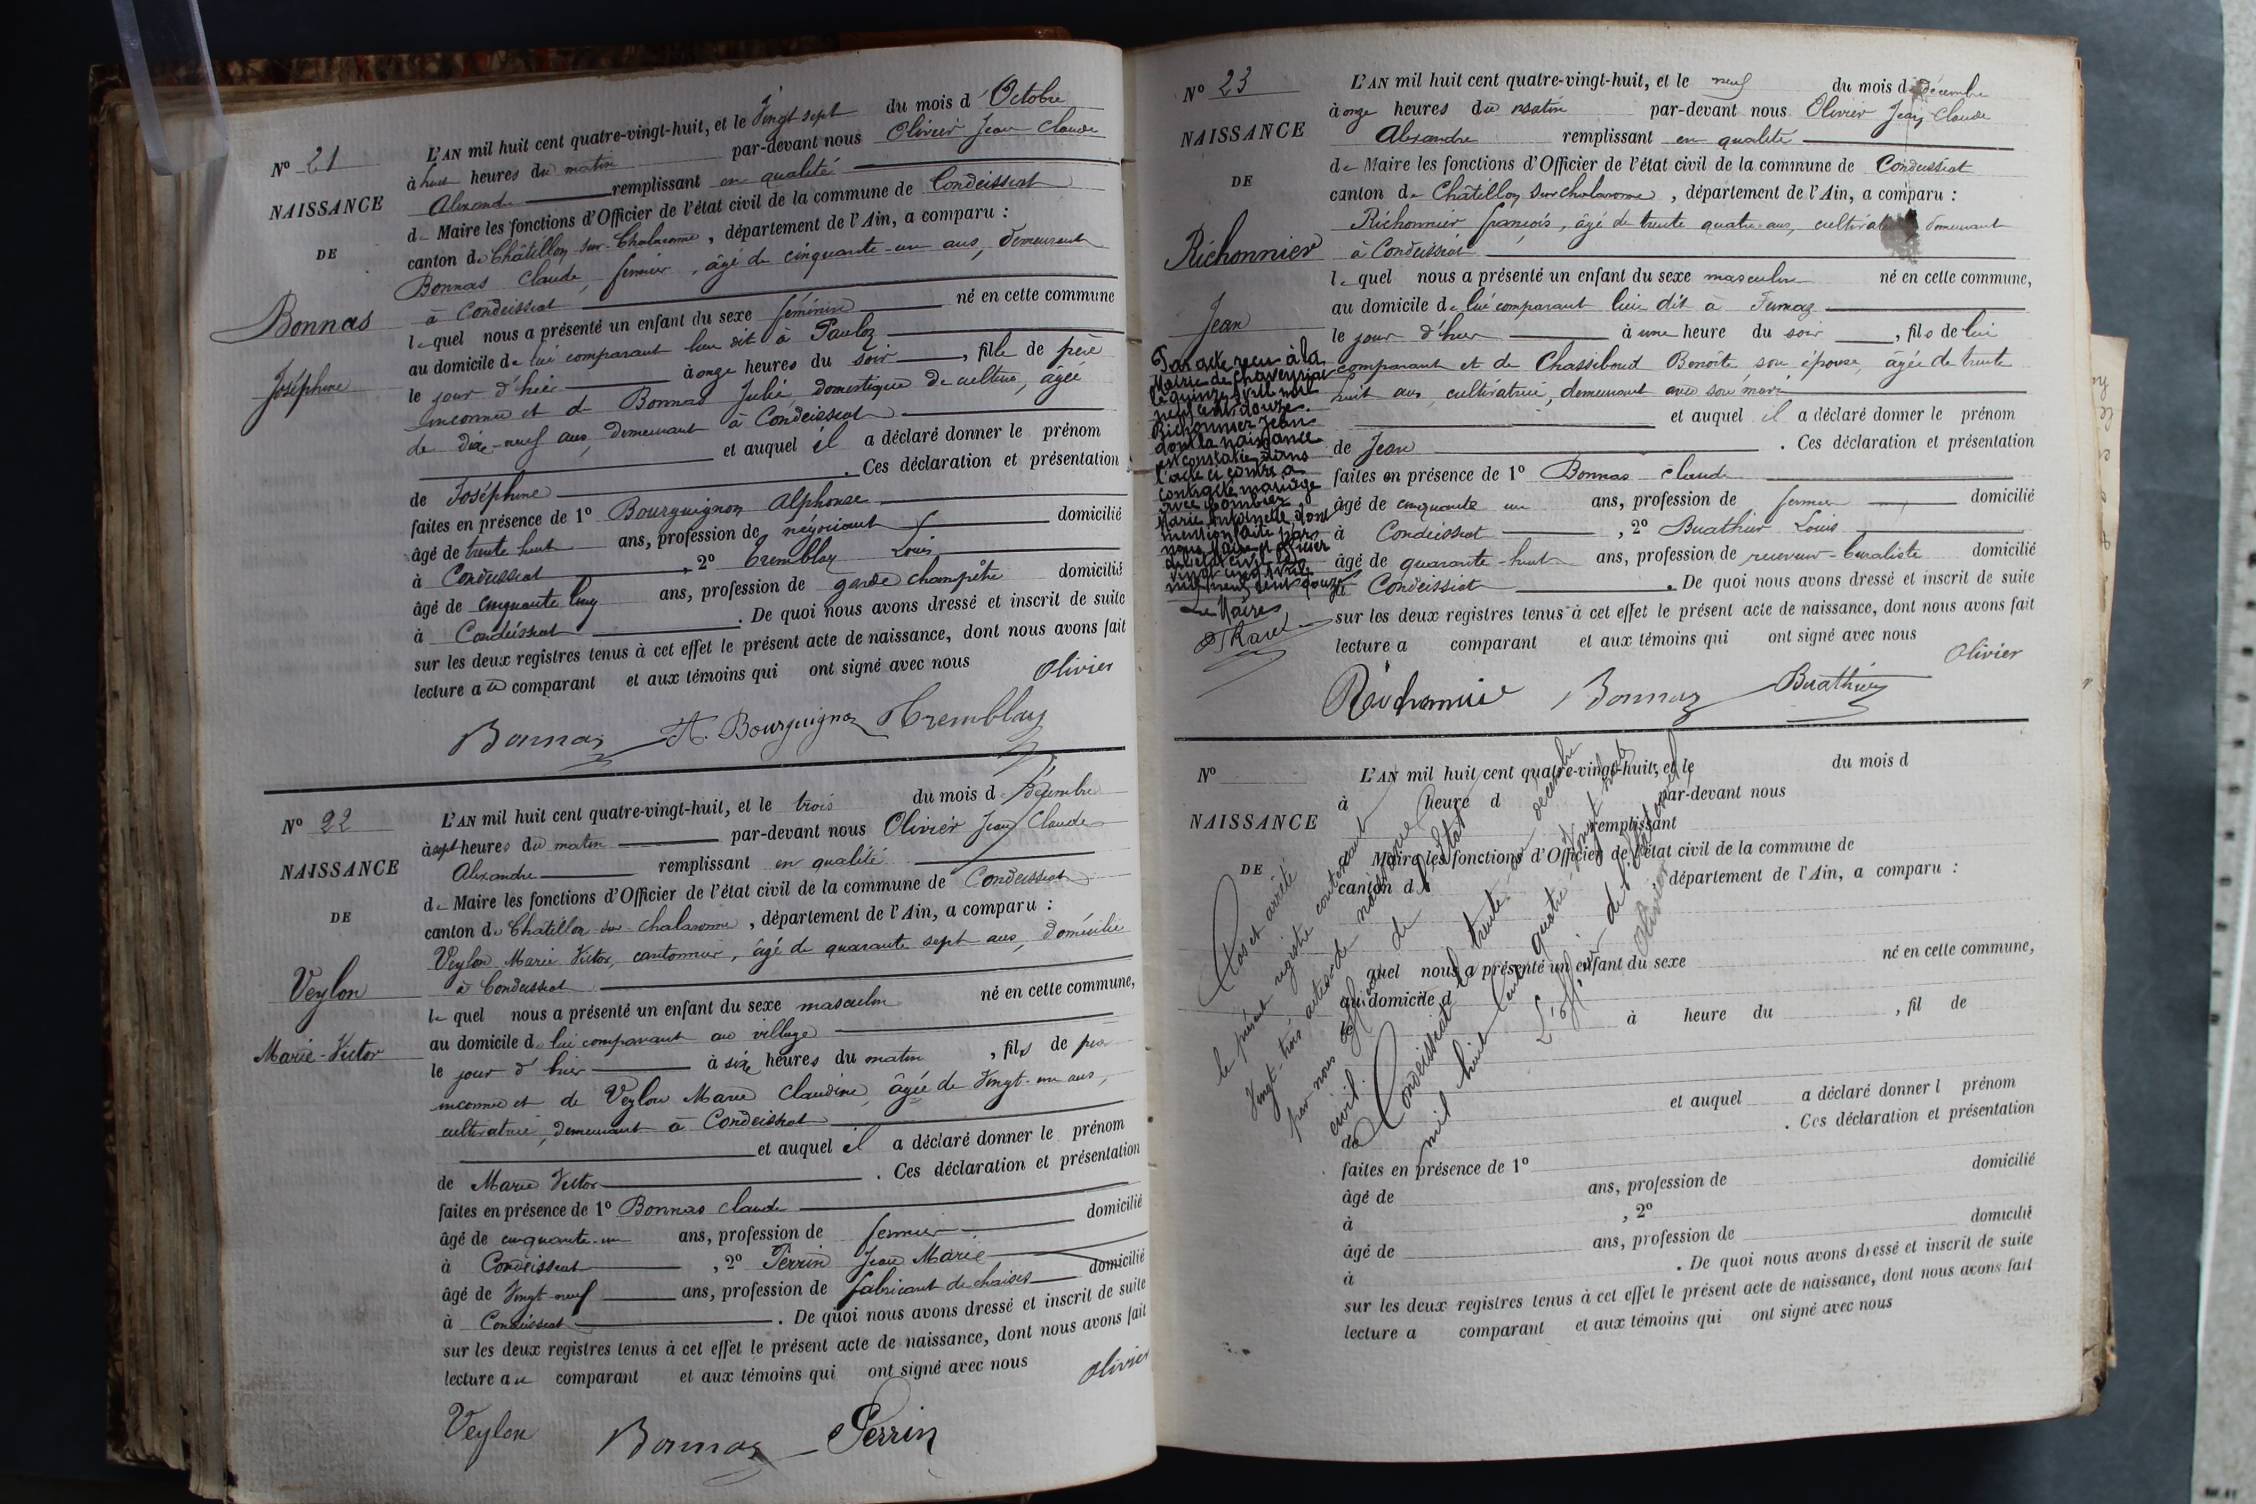 N° 21
NAISSANCE
DE
Bonnas
Joséphine
L'AN mil huit cent quatre-vingt-huit, et le Vingt sept du mois d'Octobre
à huit heures du matin par-devant nous Olivier Jean Claude
Alexandre remplissant en qualité
de Maire les fonctions d'Officier de l'état civil de la commune de Condeissiat
canton de Châtillon sur Chalaronne, département de l'Ain, a comparu :
Bonnas Claude, fermier, âgé de cinquante-un ans, demeurant
à Condeissiat
lequel nous a présenté un enfant du sexe féminin né en cette commune
au domicile de lui comparant lieu dit à Pauloz
le jour d'hier à onze heures du soir, fille de père
inconnu et de Bonnas Julie domestique de culture, âgée
de dix-neuf ans, demeurant à Condeissiat
et auquel il a déclaré donner le prénom
de Joséphine. Ces déclaration et présentation
faites en présence de 1° Bourguignon Alphonse
âgé de trente huit ans, profession de négociant domicilié
à Condeissiat, 2° Tremblay Louis
âgé de cinquante cinq ans, profession de garde champêtre domicilié
à Condeissiat. De quoi nous avons dressé et inscrit de suite
sur les deux registres tenus à cet effet le présent acte de naissance, dont nous avons fait
lecture au comparant et aux témoins qui ont signé avec nous
Olivier
Bonnaz A. Bourguignon Tremblay
N° 22
NAISSANCE
DE
Veylon
Marie-Victor
L'AN mil huit cent quatre-vingt-huit, et le trois du mois de Décembre
à sept heures du matin par-devant nous Olivier Jean Claude
Alexandre remplissant en qualité
de Maire les fonctions d'Officier de l'état civil de la commune de Condeissiat
canton de Chatillon sur Chalaronne, département de l'Ain, a comparu :
Veylon Marie Victor, cantonnier, âgé de quarante sept ans, domicilié
à Condeissiat
lequel nous a présenté un enfant du sexe masculin né en cette commune,
au domicile de lui comparant au village
le jour d'hier à six heures du matin, fils de père
inconnu et de Veylon Marie Claudine, âgée de Vingt-un ans,
cultivatrice, demeurant à Condeissiat
et auquel il a déclaré donner le prénom
de Marie Victor. Ces déclaration et présentation
faites en présence de 1° Bonnas Claude
âgé de cinquante-un ans, profession de fermier domicilié
à Condeissiat, 2° Perrin Jean Marie
âgé de Vingt-neuf ans, profession de fabricant de chaises domicilié
à Condeissiat. De quoi nous avons dressé et inscrit de suite
sur les deux registres tenus à cet effet le présent acte de naissance, dont nous avons fait
lecture au comparant et aux témoins qui ont signé avec nous
Olivier
Veylon Bonnaz Perrin
N° 23
NAISSANCE
DE
Richonnier
Jean
Par acte reçu à la
Mairie de Chaveyriat
le quinze avril mil
neuf cent douze.
Richonnier Jean
dont la naissance
est constatée dans
l'acte ci contre a
contracté mariage
avec Combier
Marie Antoinette dont
mention faite par
nous Maire et officier
de l'état civil le
vingt cinq avril
mil neuf cent douze
Le Maire,
L'AN mil huit cent quatre-vingt-huit, et le neuf du mois de décembre
à onze heures du matin par-devant nous Olivier Jean Claude
Alexandre remplissant en qualité
de Maire les fonctions d'Officier de l'état civil de la commune de Condeissiat
canton de Châtillon sur Chalaronne, département de l'Ain, a comparu :
Richonnier françois, âgé de trente quatre ans, cultivateur, demeurant
à Condeissiat
lequel nous a présenté un enfant du sexe masculin né en cette commune,
au domicile de lui comparant lieu dit à Jumaz
le jour d'hier à une heure du soir, fils de lui
comparant et de Chassibout Benoîte son épouse, âgée de trente
huit ans, cultivatrice, demeurant avec son mari
et auquel il a déclaré donner le prénom
de Jean. Ces déclaration et présentation
faites en présence de 1° Bonnas claude
âgé de cinquante un ans, profession de fermier domicilié
à Condeissiat, 2° Buathier Louis
âgé de quarante-huit ans, profession de receveur-buraliste domicilié
à Condeissiat. De quoi nous avons dressé et inscrit de suite
sur les deux registres tenus à cet effet le présent acte de naissance, dont nous avons fait
lecture a comparant et aux témoins qui ont signé avec nous
Olivier
Richonnie Bonnaz Buathier
N°
NAISSANCE
DE
L'AN mil huit cent quatre-vingt-huit, et le du mois d
à heure d par-devant nous
remplissant
Maire les fonctions d'Officier de l'état civil de la commune de
canton d département de l'Ain, a comparu :
quel nous a présenté un enfant du sexe né en cette commune,
au domicile d
à heure du , fil de
et auquel a déclaré donner l prénom
de . Ces déclaration et présentation
faites en présence de 1°
âgé de ans, profession de domicilié
à , 2°
âgé de ans, profession de domicilié
à . De quoi nous avons dressé et inscrit de suite
sur les deux registres tenus à cet effet le présent acte de naissance, dont nous avons fait
lecture a comparant et aux témoins qui ont signé avec nous
Clos et arrêté
le présent registre contenant
Vingt-trois actes de naissance
par nous officier de l'état
civil.
Condeissiat le trente-un décembre
mil huit cent quatre vingt huit
L'officier de l'état civil
Olivier